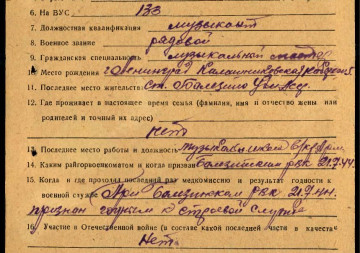 6. На ВУС 133
7. Должностная квалификация музыкант
8. Военное звание рядовой
9. Гражданская специальность музыкальной мастер
10. Место рождения г. Ленинград
11. Последнее место жительства ст. Балезино Удм.
12. Где проживает в настоящее время семья (фамилия, имя и отчество жены или
родителей и точный их адрес)
нет
13. Последнее место работы и должность
14. Каким райгорвоенкоматом и когда призван Балезинским рвк 21.7.44
15. Когда и где проходил последний раз медкомиссию и результат годности к
военной службе При Балезинском РВК 21.7.44.
признан годным к строевой службе
16. Участие в Отечественной войне (в составе какой последней части и в качестве
Нет